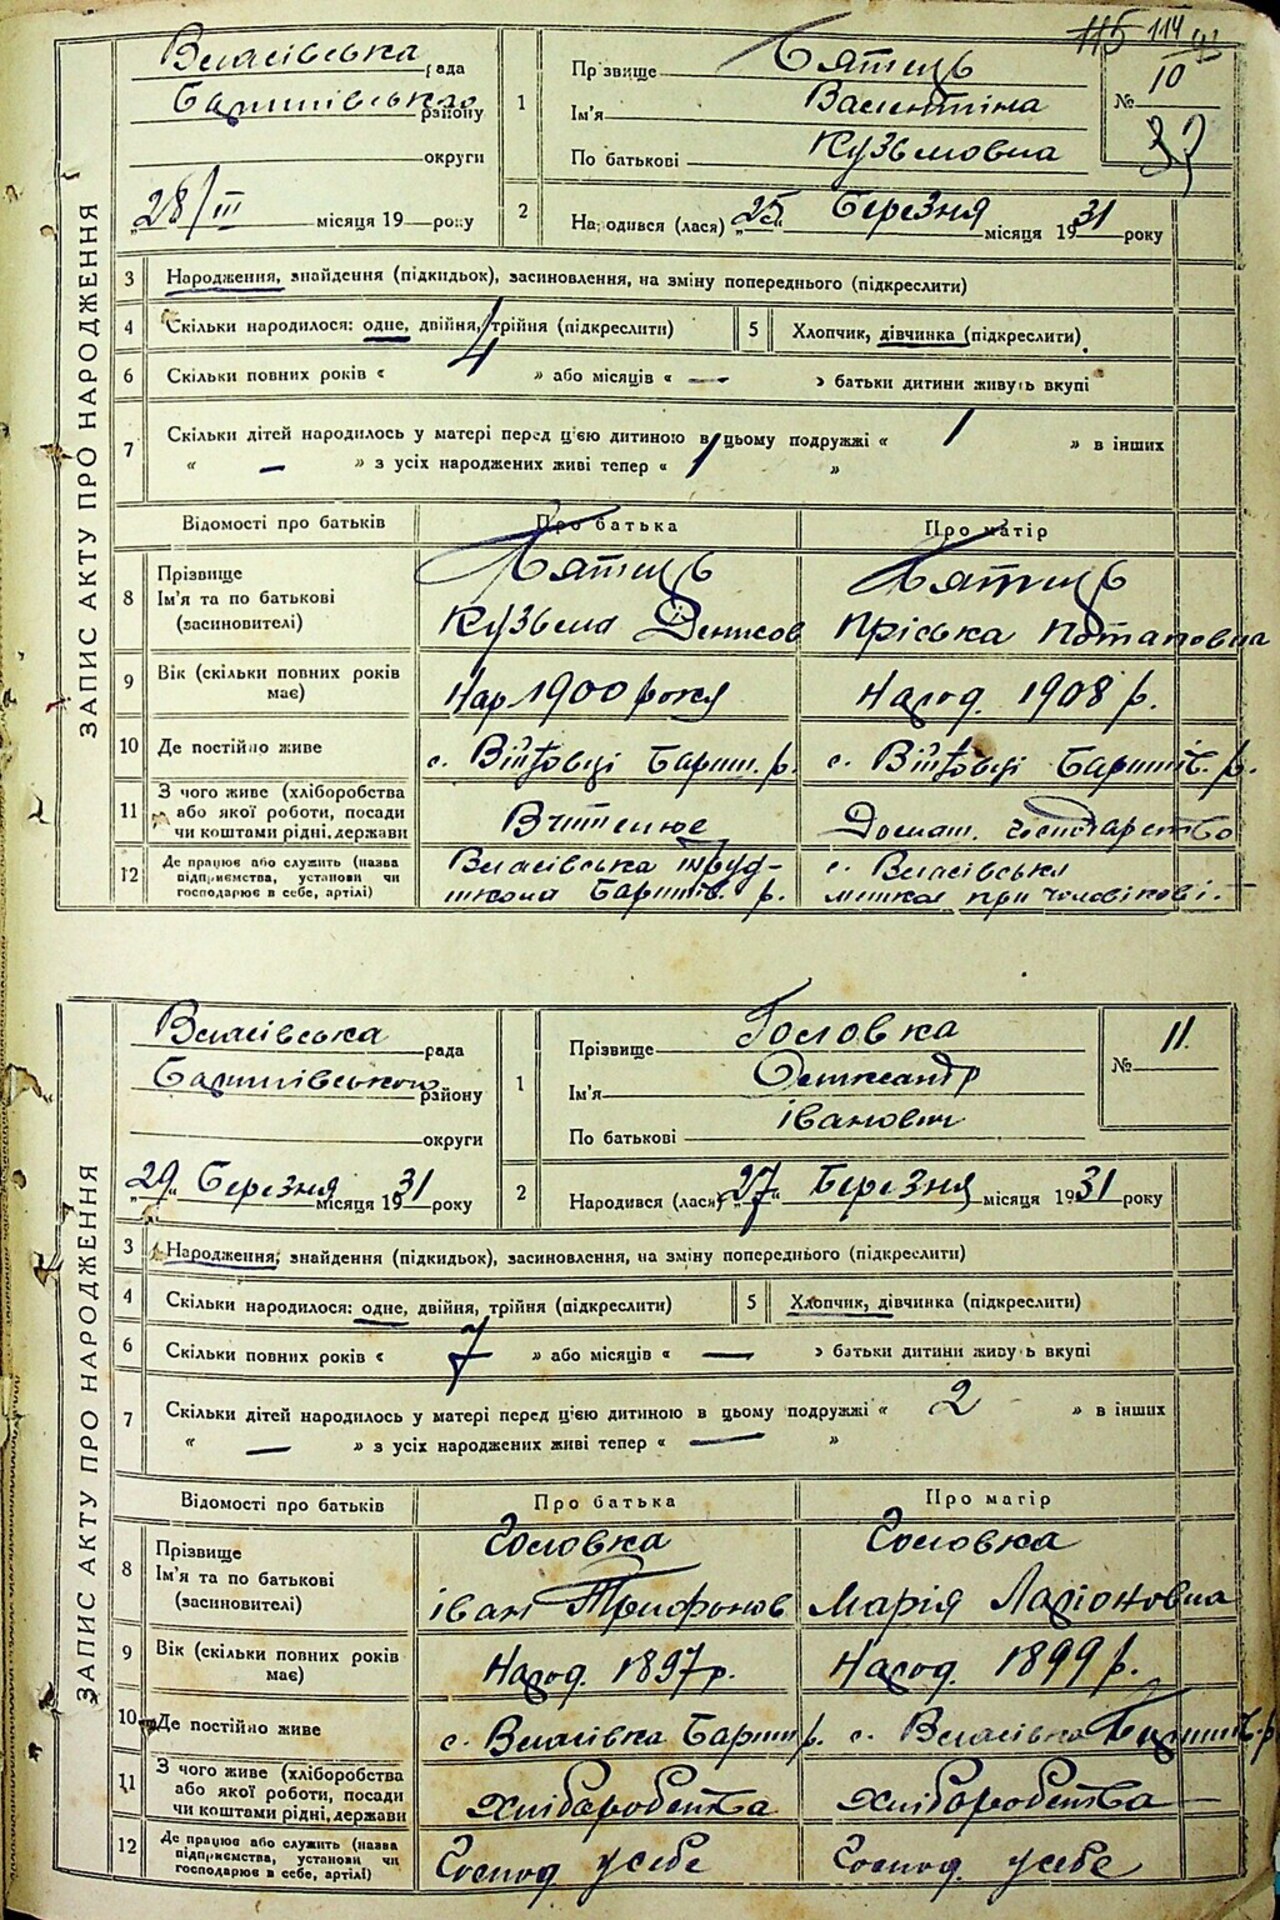 115 114 93
ЗАПИС АКТУ ПРО НАРОДЖЕННЯ
Власівська рада
Баришівського району
округи
28/III місяця 19 року
1
Прізвище Бятець
Ім'я Валентіна
По батькові Кузьмовна
№ 10
2
Народився (лася) „25" Березня місяця 1931 року
3 Народження, знайдення (підкидьок), засиновлення, на зміну попереднього (підкреслити)
4 Скільки народилося: одне, двійня, трійня (підкреслити) 5 Хлопчик, дівчинка (підкреслити)
6 Скільки повних років « 4 » або місяців « — » батьки дитини живуть вкупі
7 Скільки дітей народилось у матері перед ц'єю дитиною в цьому подружжі « 1 » в інших
« — » з усіх народжених живі тепер « 1 »
Відомості про батьків Про батька Про матір
8 Прізвище
Ім'я та по батькові
(засиновителі)
Бятець
Кузьма Денисов
Бятець
Пріська Потаповна
9 Вік (скільки повних років має) Нар 1900 рокя Народ. 1908 р.
10 Де постійно живе с. Війтовці Бариш. р. с. Війтовці Баришів. р.
11 З чого живе (хліборобства
або якої роботи, посади
чи коштами рідні, держави
Вчителює
Домаш. господарство
12 Де працює або служить (назва
підприємства, установи чи
господарює в себе, артілі)
Власівська труд-
школа Баришів. р.
с. Власівська
при чоловікові.
ЗАПИС АКТУ ПРО НАРОДЖЕННЯ
Власівська рада
Баришівського району
округи
„29" Березня місяця 1931 року
1
Прізвище Головка
Ім'я Олександр
По батькові Іванович
№ 11.
2
Народився (лася) „27" Березня місяця 1931 року
3 Народження, знайдення (підкидьок), засиновлення, на зміну попереднього (підкреслити)
4 Скільки народилося: одне, двійня, трійня (підкреслити) 5 Хлопчик, дівчинка (підкреслити)
6 Скільки повних років « 7 » або місяців « — » батьки дитини живуть вкупі
7 Скільки дітей народилось у матері перед ц'єю дитиною в цьому подружжі « 2 » в інших
« — » з усіх народжених живі тепер « — »
Відомості про батьків Про батька Про матір
8 Прізвище
Ім'я та по батькові
(засиновителі)
Головка
Іван Трифонов
Головка
Марія Ларіоновна
9 Вік (скільки повних років має) Народ. 1897 р. Народ. 1899 р.
10 Де постійно живе с. Власівка Бариш р. с. Власівка Баришів. р
11 З чого живе (хліборобства
або якої роботи, посади
чи коштами рідні, держави
Хлібаробства
Хлібаробства
12 Де працює або служить (назва
підприємства, установи чи
господарює в себе, артілі)
Господ у себе
Господ. у себе